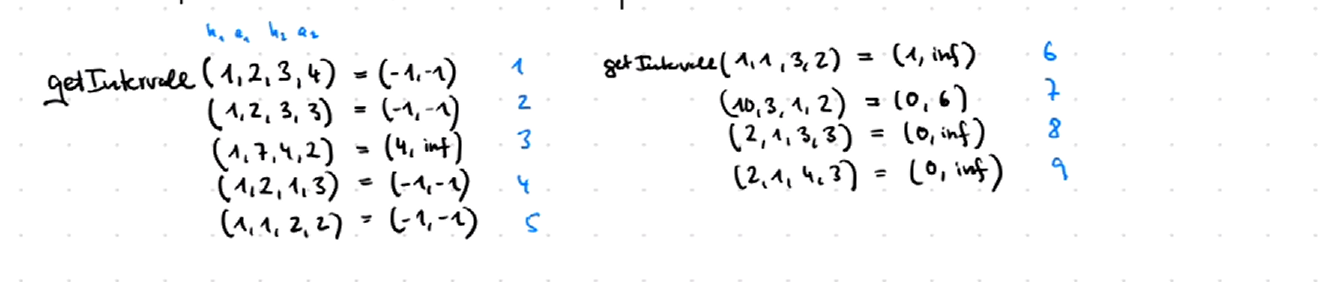 h₁ a₁ h₂ a₂
getIntervalle (1,2,3,4) = (-1,-1) 1
(1,2,3,3) = (-1,-1) 2
(1,7,4,2) = (4, inf) 3
(1,2,1,3) = (-1,-1) 4
(1,1,2,2) = (-1,-1) 5
getIntervalle (1,1,3,2) = (1, inf) 6
(10,3,1,2) = (0,6) 7
(2,1,3,3) = (0, inf) 8
(2,1,4,3) = (0, inf) 9